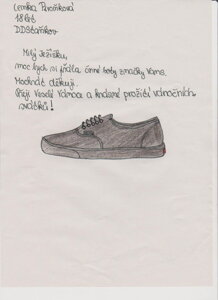 Lenka
18 let
DD Staňkov
Milý Ježíšku,
moc bych si přála černé boty značky Vans.
Mockrát děkuji.
Přeji Veselé Vánoce a krásné prožití vánočních
svátků!